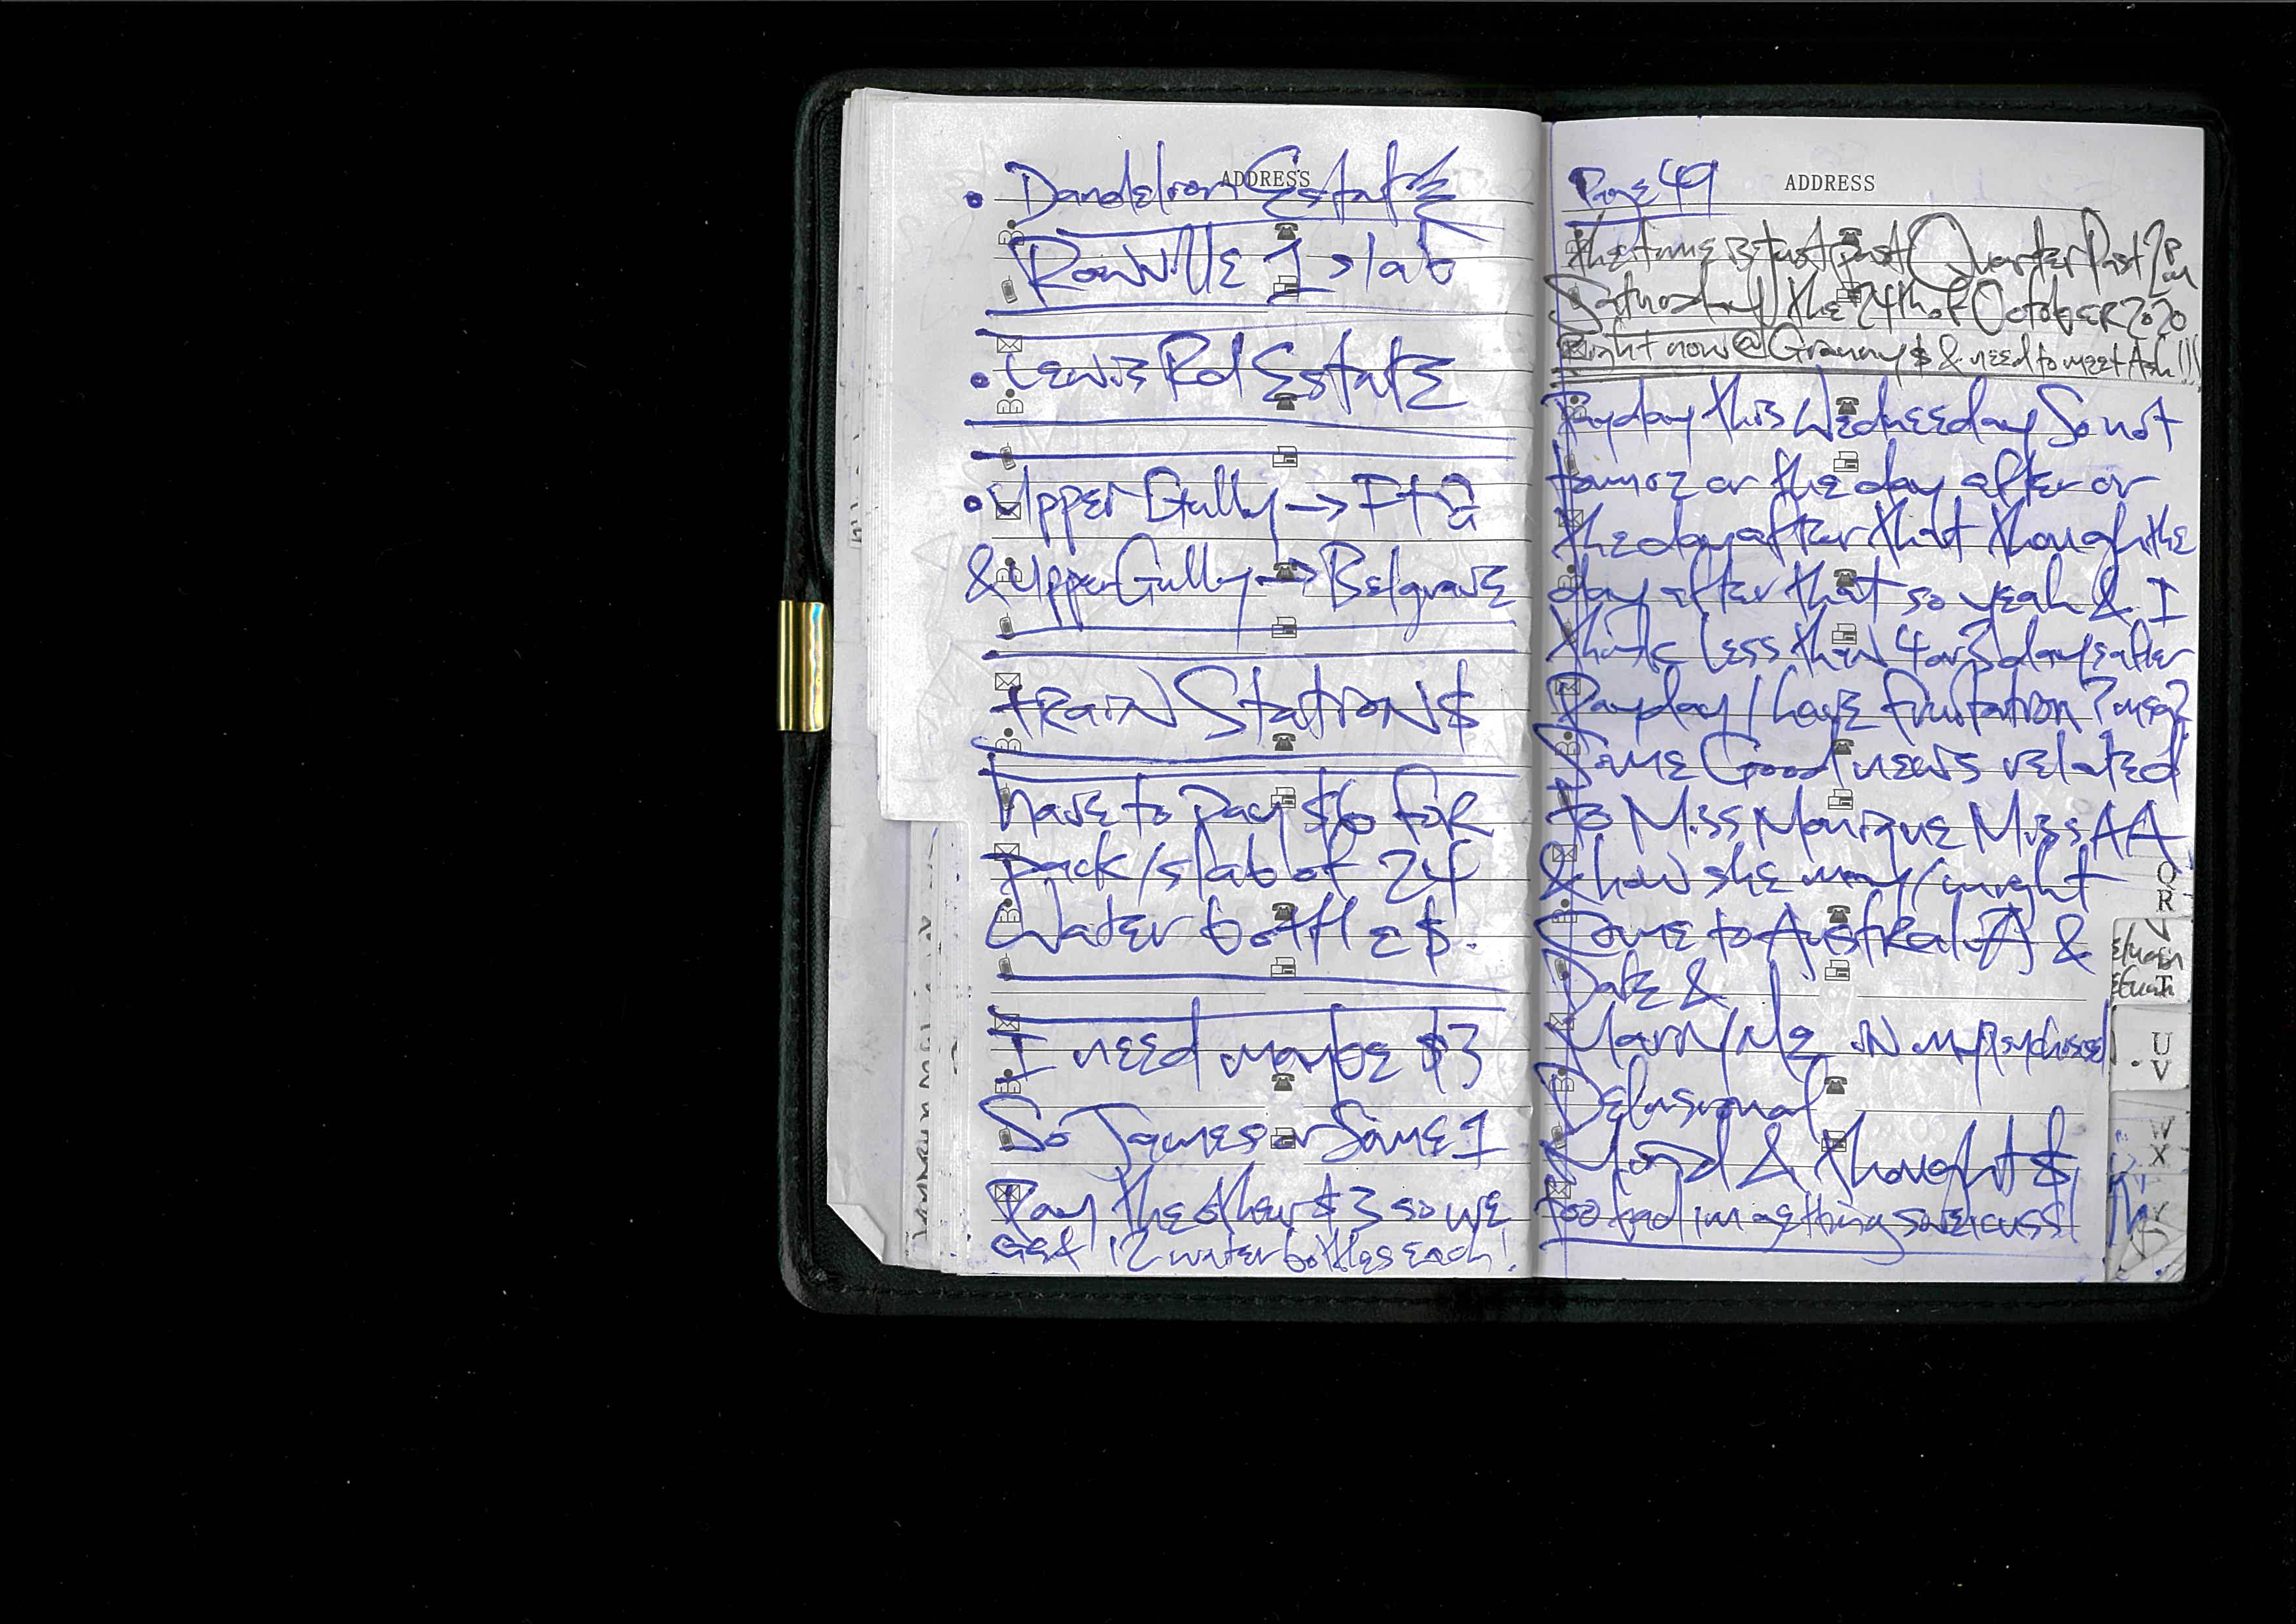 ADDRESS
• Dandelion Estate
Rowville 1 slab
• Lewis Rd Estate
• Upper Gully →
& Upper Gully → Belgrave
tRaiN StatioN$
have to pay $6 foR
pack/slab of 24
Water bottle$.
I need maybe $3
So James or Some 1
Pay the other $3 so we
Get 12 water bottles each!
Page 49
ADDRESS
the time is just past Quarter Past 2pm
Saturday the 24th of OctobeR 2020
Right now @ Granny$ & need to meet Ash!!!
Payday this Wednesday So not
tomoz or the day after or
the day after that though the
day after that so yeah & I
think less than 4 or 3 days after
Payday I have frustation ? mea?
Some Good news related
to Miss Monique Miss AA
& how she may/might
Come to AustRaliA &
Date &
Marry Me iN my
Delusional
Mind & thought$
too bad im
Q
R
T
U
V
W
X
Y